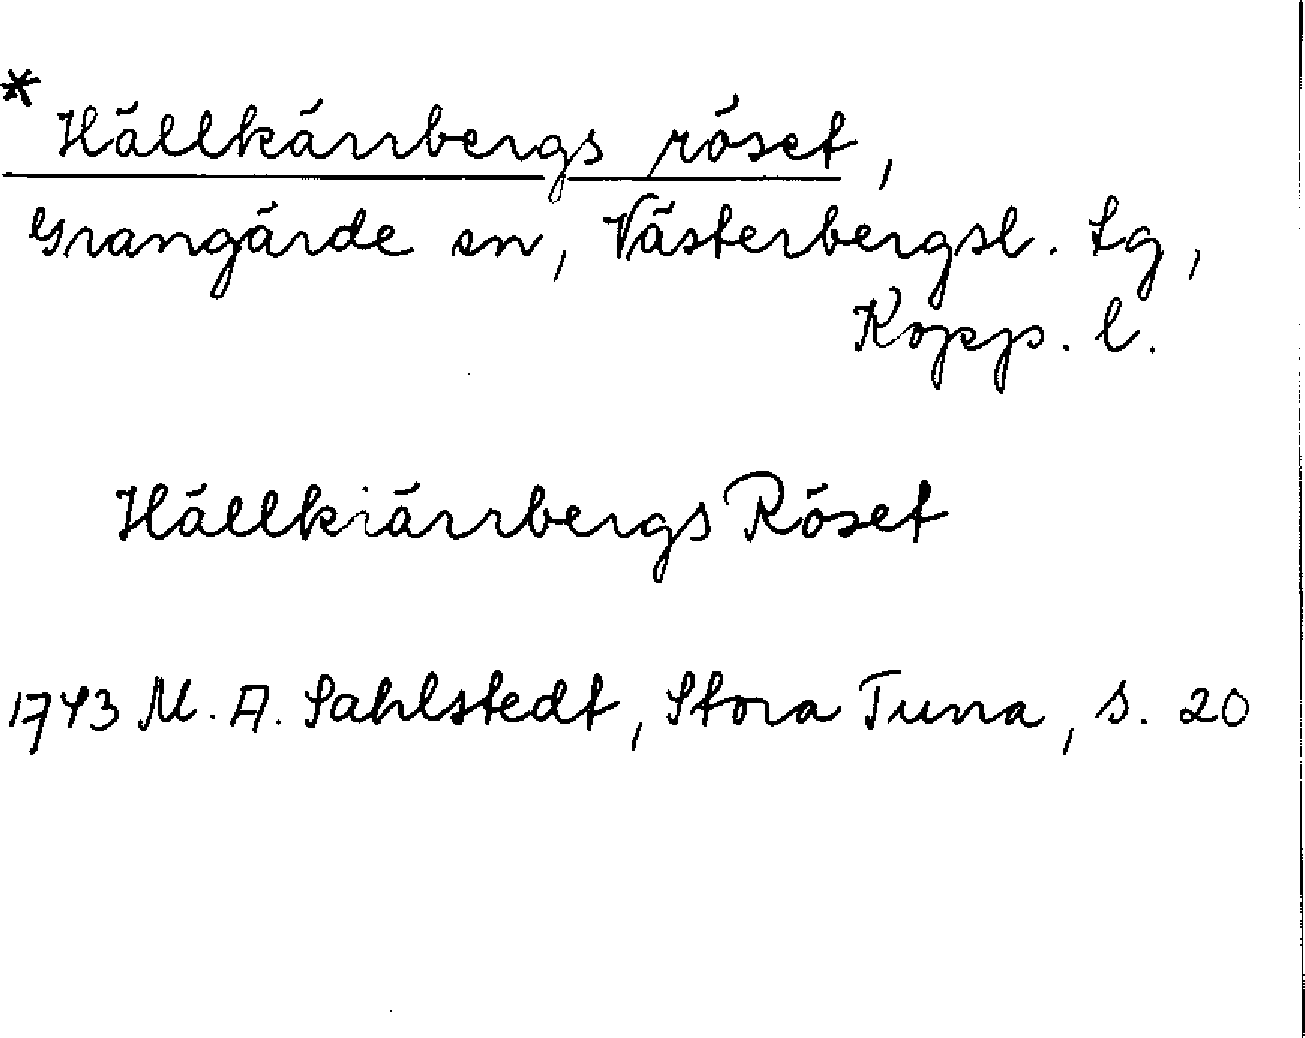 * Hällkärrbergs röset,
Grangärde sn, Västerbergsl. tg,
Kopp. l.
Hällkiärrbergs Röset
1743 M. A. Sahlstedt, Stora Tuna, s. 20